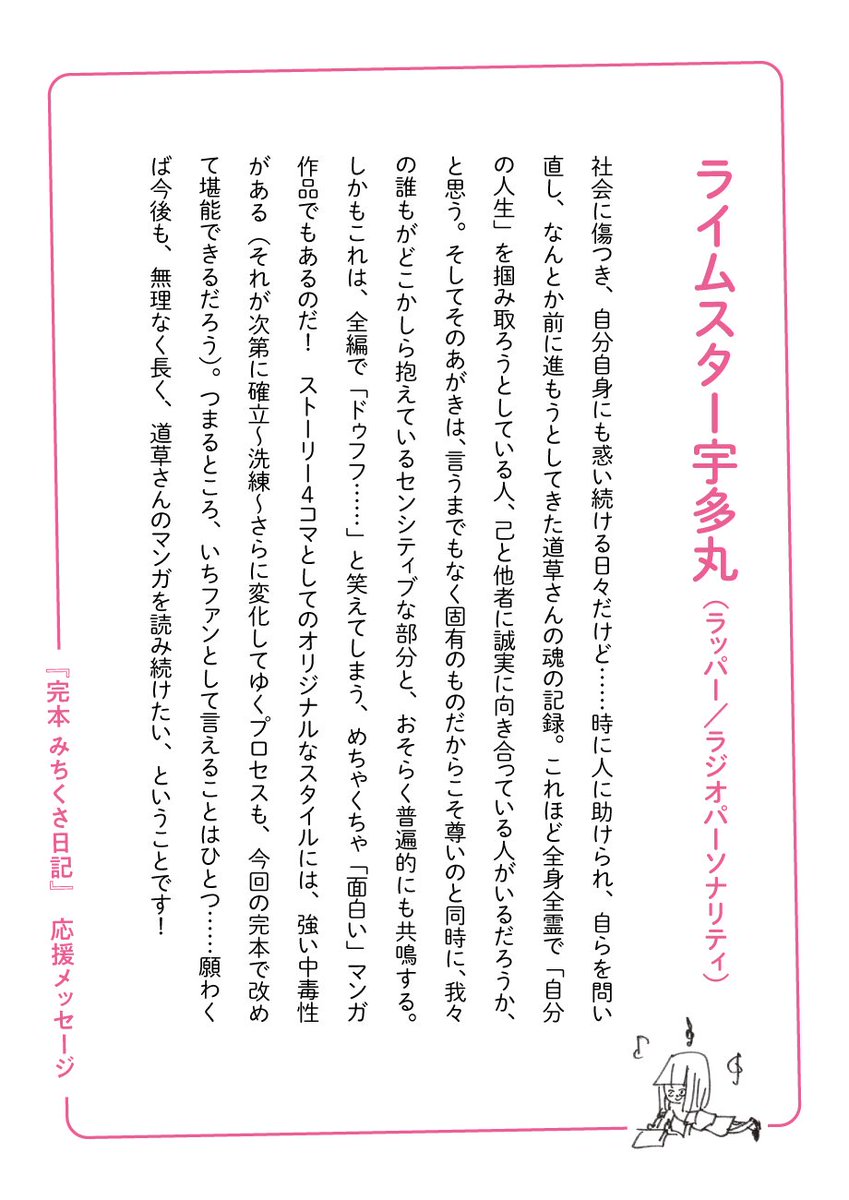 ライムスター宇多丸（ラッパー／ラジオパーソナリティ）
社会に傷つき、自分自身にも惑い続ける日々だけど……時に人に助けられ、自らを問い
直し、なんとか前に進もうとしてきた道草さんの魂の記録。これほど全身全霊で「自分
の人生」を掴み取ろうとしている人、己と他者に誠実に向き合っている人がいるだろうか、
と思う。そしてそのあがきは、言うまでもなく固有のものだからこそ尊いのと同時に、我々
の誰もがどこかしら抱えているセンシティブな部分と、おそらく普遍的にも共鳴する。
しかもこれは、全編で「ドゥフフ……」と笑えてしまう、めちゃくちゃ「面白い」マンガ
作品でもあるのだ！　ストーリー4コマとしてのオリジナルなスタイルには、強い中毒性
がある（それが次第に確立〜洗練〜さらに変化してゆくプロセスも、今回の完本で改め
て堪能できるだろう）。つまるところ、いちファンとして言えることはひとつ……願わく
ば今後も、無理なく長く、道草さんのマンガを読み続けたい、ということです！
『完本 みちくさ日記』　応援メッセージ